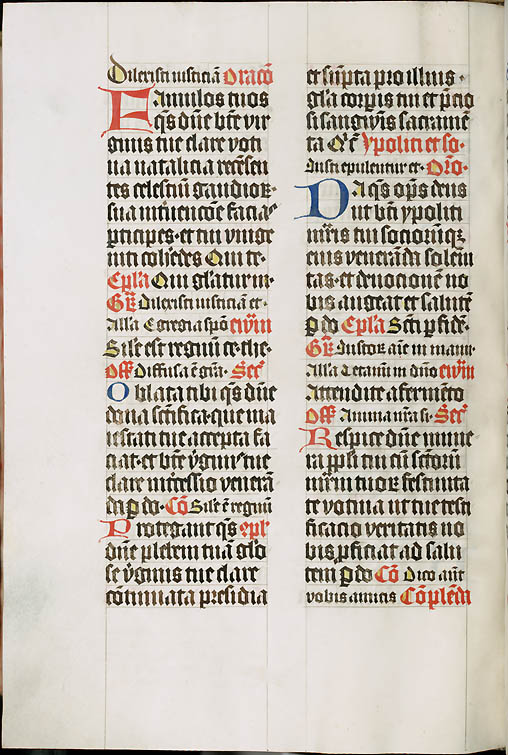 Dilexisti iusticiā Oracō
Famulos tuos
q̄s dn̄e bt̄e vir
ginis tue clare voti
ua natalicia recēsen
tes celestiū gaudioꝝ
sua int̄uencōe facias
ꝑticipes · et tui vnige
niti cohedes Qui te·
Epl̄a Qui gl̄atur in·
Gꝝ Dilexisti iusticiā et·
Alla Egregia spō ewm̄
Sil̄e est regnū ce· the·
Off̄ Diffusa ē gr̄a· Secr̄
Oblata tibi q̄s dn̄e
dona sct̄ifica· que ma
iestati tue accepta fa
ciat· et bt̄e v̄ginis tue
clare int̄cessio venerā
da ꝑ do· Cō Sil̄e ē regnū
Protegant q̄s epl̄
dn̄e plebem tuā gl̄o
se v̄ginis tue clare
cōtinuata presidia
et sūpta pro illius·
gl̄a corpis tui et p̄cio
si sanguīs sacramē
ta Q' ē Ypoliti et so·
Iusti epulentur et· Orō·
Da q̄s op̄s deus
ut bt̄i ypoliti
mr̄is tui socioruqꝫ
eius veneranda solem̄
tas· et deuocionē no
bis augeat et salutē
ꝑ do Epl̄a Sc̄ti ꝑ fidē·
Gꝝ Iustoꝝ aīe in manu·
All'a Letamī in dn̄o ewm̄
Attendite a fermēto
Off̄ Anima nr̄a si· Secr̄
Respice dn̄e mune
ra pp̄li tui cū sctorū
mr̄m tuoꝝ festiuita
te votiua ut tue testi
ficacio veritatis no
bis ꝓficiat ad salu
tem ꝑ do Cō Dico aūt
vobis amicis Cōplēdā